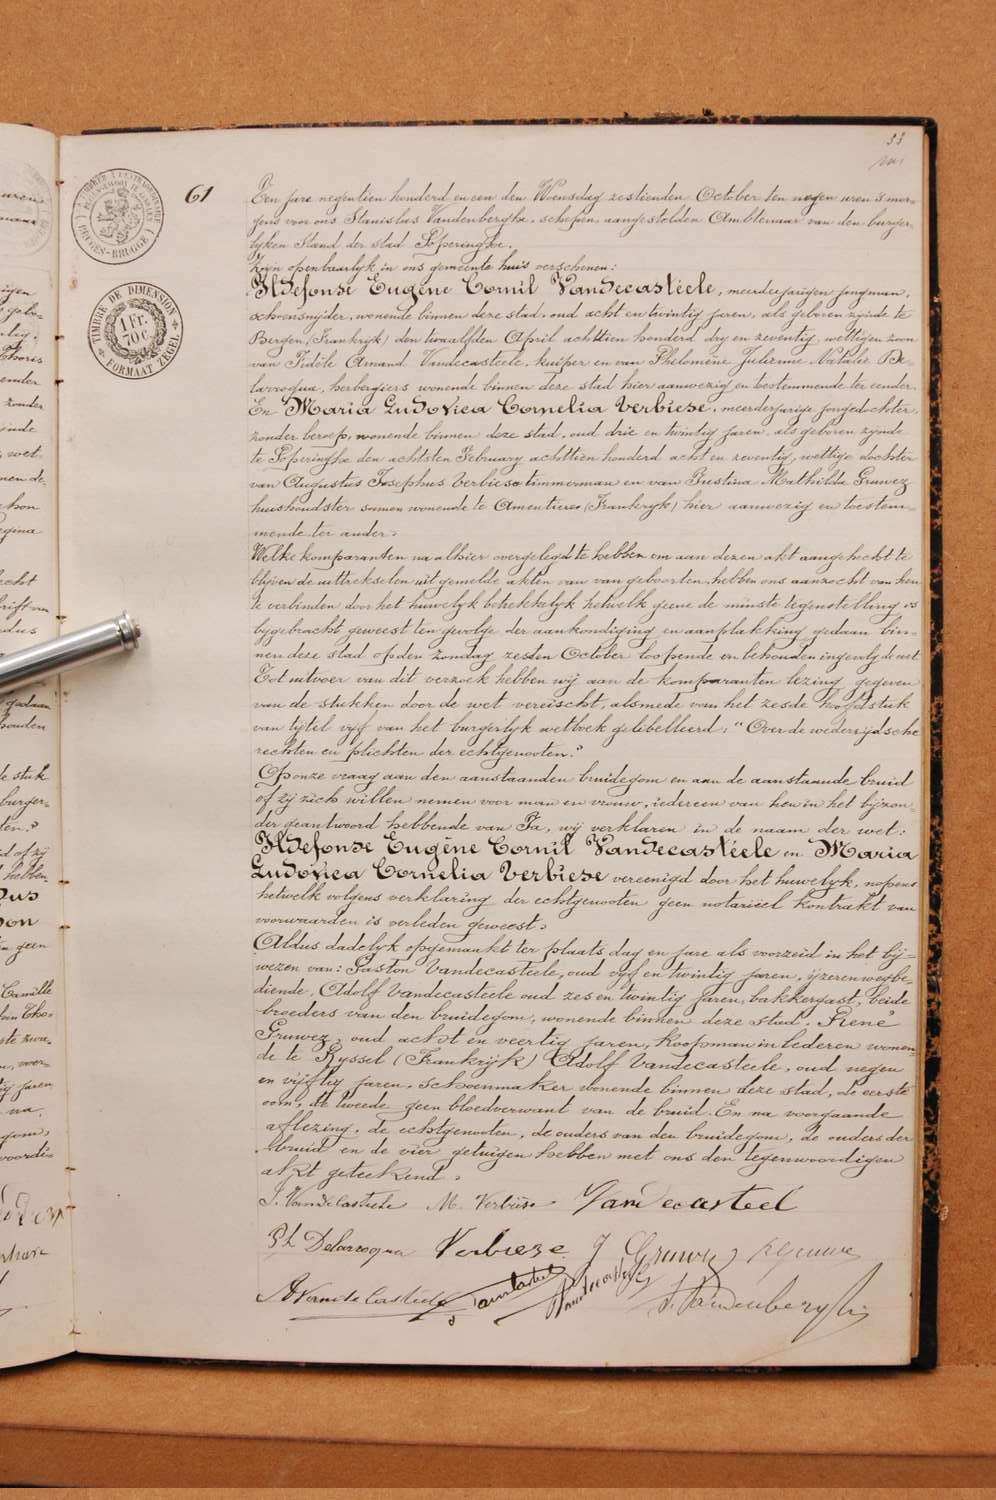 33
61
TIMBRE DE DIMENSION
1 Fr.
70 c.
FORMAAT ZEGEL
BRUGES-BRUGGE
Een jare negentien honderd en een den Woensdag zestienden October ten negen uren 's mor-
gens voor ons Stanislas Vandenberghe, schepen, aangestelden Ambtenaar van den burger-
lyken Stand der stad Poperinghe.
Zyn openbaarlyk in ons gemeente huis verschenen:
Ildefonse Eugène Cornil Vandecastéele, meerderjarigen jongman,
schoensnyder, wonende binnen deze stad, oud acht en twintig jaren, als geboren zynde te
Bergen, (Frankryk) den twaalfden April achttien honderd dry en zeventig, wettigen zoon
van Fidèle Amand Vandecasteele, kuiper en van Philomène Julienne Natalie De-
larroqua, herbergiers wonende binnen deze stad hier aanwezig en toestemmende ter eender.
En Maria Ludovica Cornelia Verbiese, meerderjarige jongedochter,
zonder beroep, wonende binnen deze stad, oud drie en twintig jaren, als geboren zynde
te Poperinghe den achtsten February achttien honderd acht en zeventig, wettige dochter
van Augustus Josephus Verbiese timmerman en van Justina Mathilda Gruwez
huishoudster samen wonende te Amentieres (Frankryk) hier aanwezig en toestem-
mende ter ander.
Welke komparanten na alhier overgelegd te hebben om aan dezen akt aangehecht te
blyven de uittrekselen uit gemelde akten van van geboorten, hebben ons aanzocht van hen
te verbinden door het huwelyk betrekkelyk hetwelk geene de minste tegenstelling is
bygebracht geweest ten gevolge der aankondiging en aanplakking gedaan bin-
nen deze stad op den Zondag zesden October loopende en behouden ingevolg de wet
Tot uitvoer van dit verzoek hebben wij aan de komparanten lezing gegeven
van de stukken door de wet vereischt, alsmede van het zesde hoofdstuk
van tijtel vijf van het burgerlyk wetboek gelibelleerd: "Over de wederzijdsche
rechten en plichten der echtgenooten."
Op onze vraag aan den aanstaanden bruidegom en aan de aanstaande bruid
of zij zich willen nemen voor man en vrouw, iedereen van hen in het bijzon-
der geantwoord hebbende van Ja, wij verklaren in de naam der wet:
Ildefonse Eugène Cornil Vandecastéele en Maria
Ludovica Cornelia Verbiese vereenigd door het huwelyk, nopens
hetwelk volgens verklaring der echtgenooten geen notarieel kontrakt van
voorwaarden is verleden geweest.
Aldus dadelyk opgemaakt ter plaats dag en jare als voorzeid in het bij-
wezen van: Gaston Vandecasteele, oud vyf en twintig jaren, ijzerenwegbe-
diende, Adolf Vandecasteele oud zes en twintig jaren, bakkergast, beide
broeders van den bruidegom, wonende binnen deze stad. René
Gruwez, oud acht en veertig jaren, koopman in lederen wonen-
de te Ryssel (Frankrijk) Adolf Vandecasteele, oud negen
en vijftig jaren, schoenmaker wonende binnen deze stad, de eerste
oom, de tweede geen bloedverwant van de bruid. En na voorgaande
aflezing, de echtgenooten, de ouders van den bruidegom, de ouders der
bruid en de vier getuigen hebben met ons den tegenwoordigen
akt geteekend.
I. Vandecasteele M. Verbiese Vandecasteel
Ph Delarroqua Verbiese J Gruwez R Gruwez
A Vandecasteele Vandecasteele
S. Vandenberghe